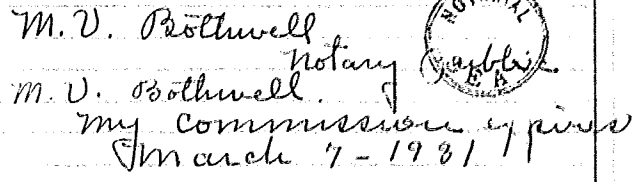 M. V. Bothwell
Notary Public
NOTARIAL
SEAL
M. V. Bothwell.
My commission expires
March 7-1931